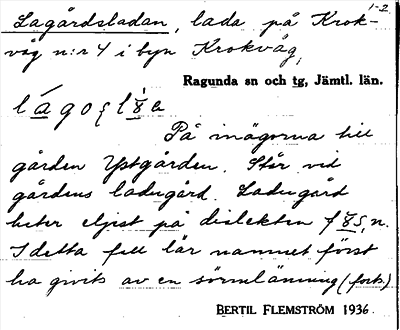 Lagårdsladan, lada på Krok-
1-2
våg n:r 4 i byn Krokvåg,
Ragunda sn och tg, Jämtl. län.
På inägorna till
gården Ystgården. Står vid
gårdens ladugård. Ladugård
heter eljest på dialekten
I detta fall lär namnet först
ha givits av en sörmlänning (forts.)
BERTIL FLEMSTRÖM 1936.